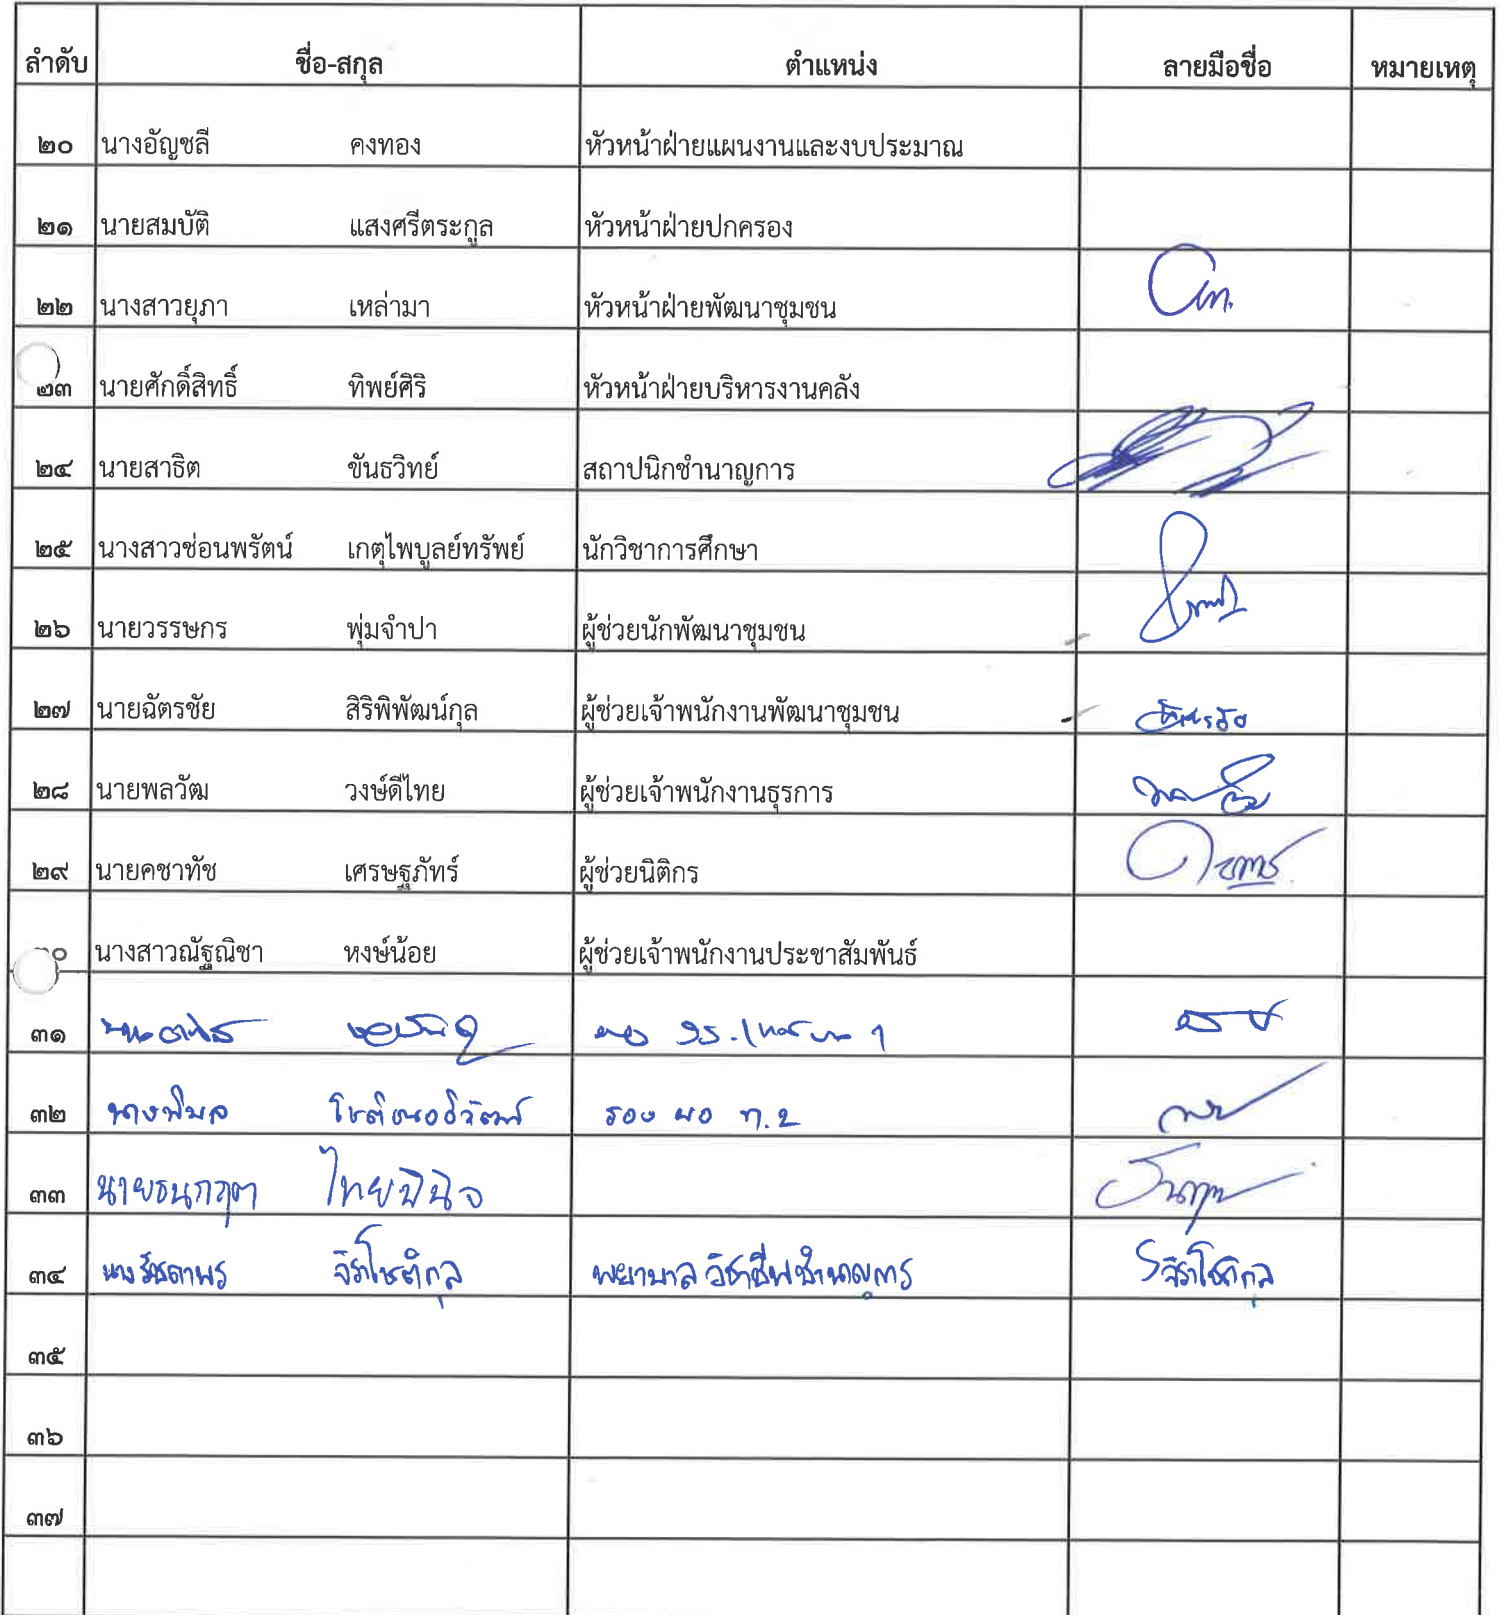 ลำดับ ชื่อ-สกุล ตำแหน่ง ลายมือชื่อ หมายเหตุ
๒๐ นางอัญชลี คงทอง หัวหน้าฝ่ายแผนงานและงบประมาณ
๒๑ นายสมบัติ แสงศรีตระกูล หัวหน้าฝ่ายปกครอง
๒๒ นางสาวยุภา เหล่ามา หัวหน้าฝ่ายพัฒนาชุมชน
๒๓ นายศักดิ์สิทธิ์ ทิพย์ศิริ หัวหน้าฝ่ายบริหารงานคลัง
๒๔ นายสาธิต ขันธวิทย์ สถาปนิกชำนาญการ
๒๕ นางสาวช่อนพรัตน์ เกตุไพบูลย์ทรัพย์ นักวิชาการศึกษา
๒๖ นายวรรษกร พุ่มจำปา ผู้ช่วยนักพัฒนาชุมชน
๒๗ นายฉัตรชัย สิริพิพัฒน์กุล ผู้ช่วยเจ้าพนักงานพัฒนาชุมชน ฉัตรชัย
๒๘ นายพลวัฒ วงษ์ดีไทย ผู้ช่วยเจ้าพนักงานธุรการ
๒๙ นายคชาทัช เศรษฐภัทร์ ผู้ช่วยนิติกร
๓๐ นางสาวณัฐณิชา หงษ์น้อย ผู้ช่วยเจ้าพนักงานประชาสัมพันธ์
๓๑
๓๒ นางพิมล รอง ผอ ท.๒
๓๓ นายธนกฤต ไทยพินิจ
๓๔ นางรัชดาพร จิราโชติกุล พยาบาลวิชาชีพชำนาญการ ร จิราโชติกุล
๓๕
๓๖
๓๗